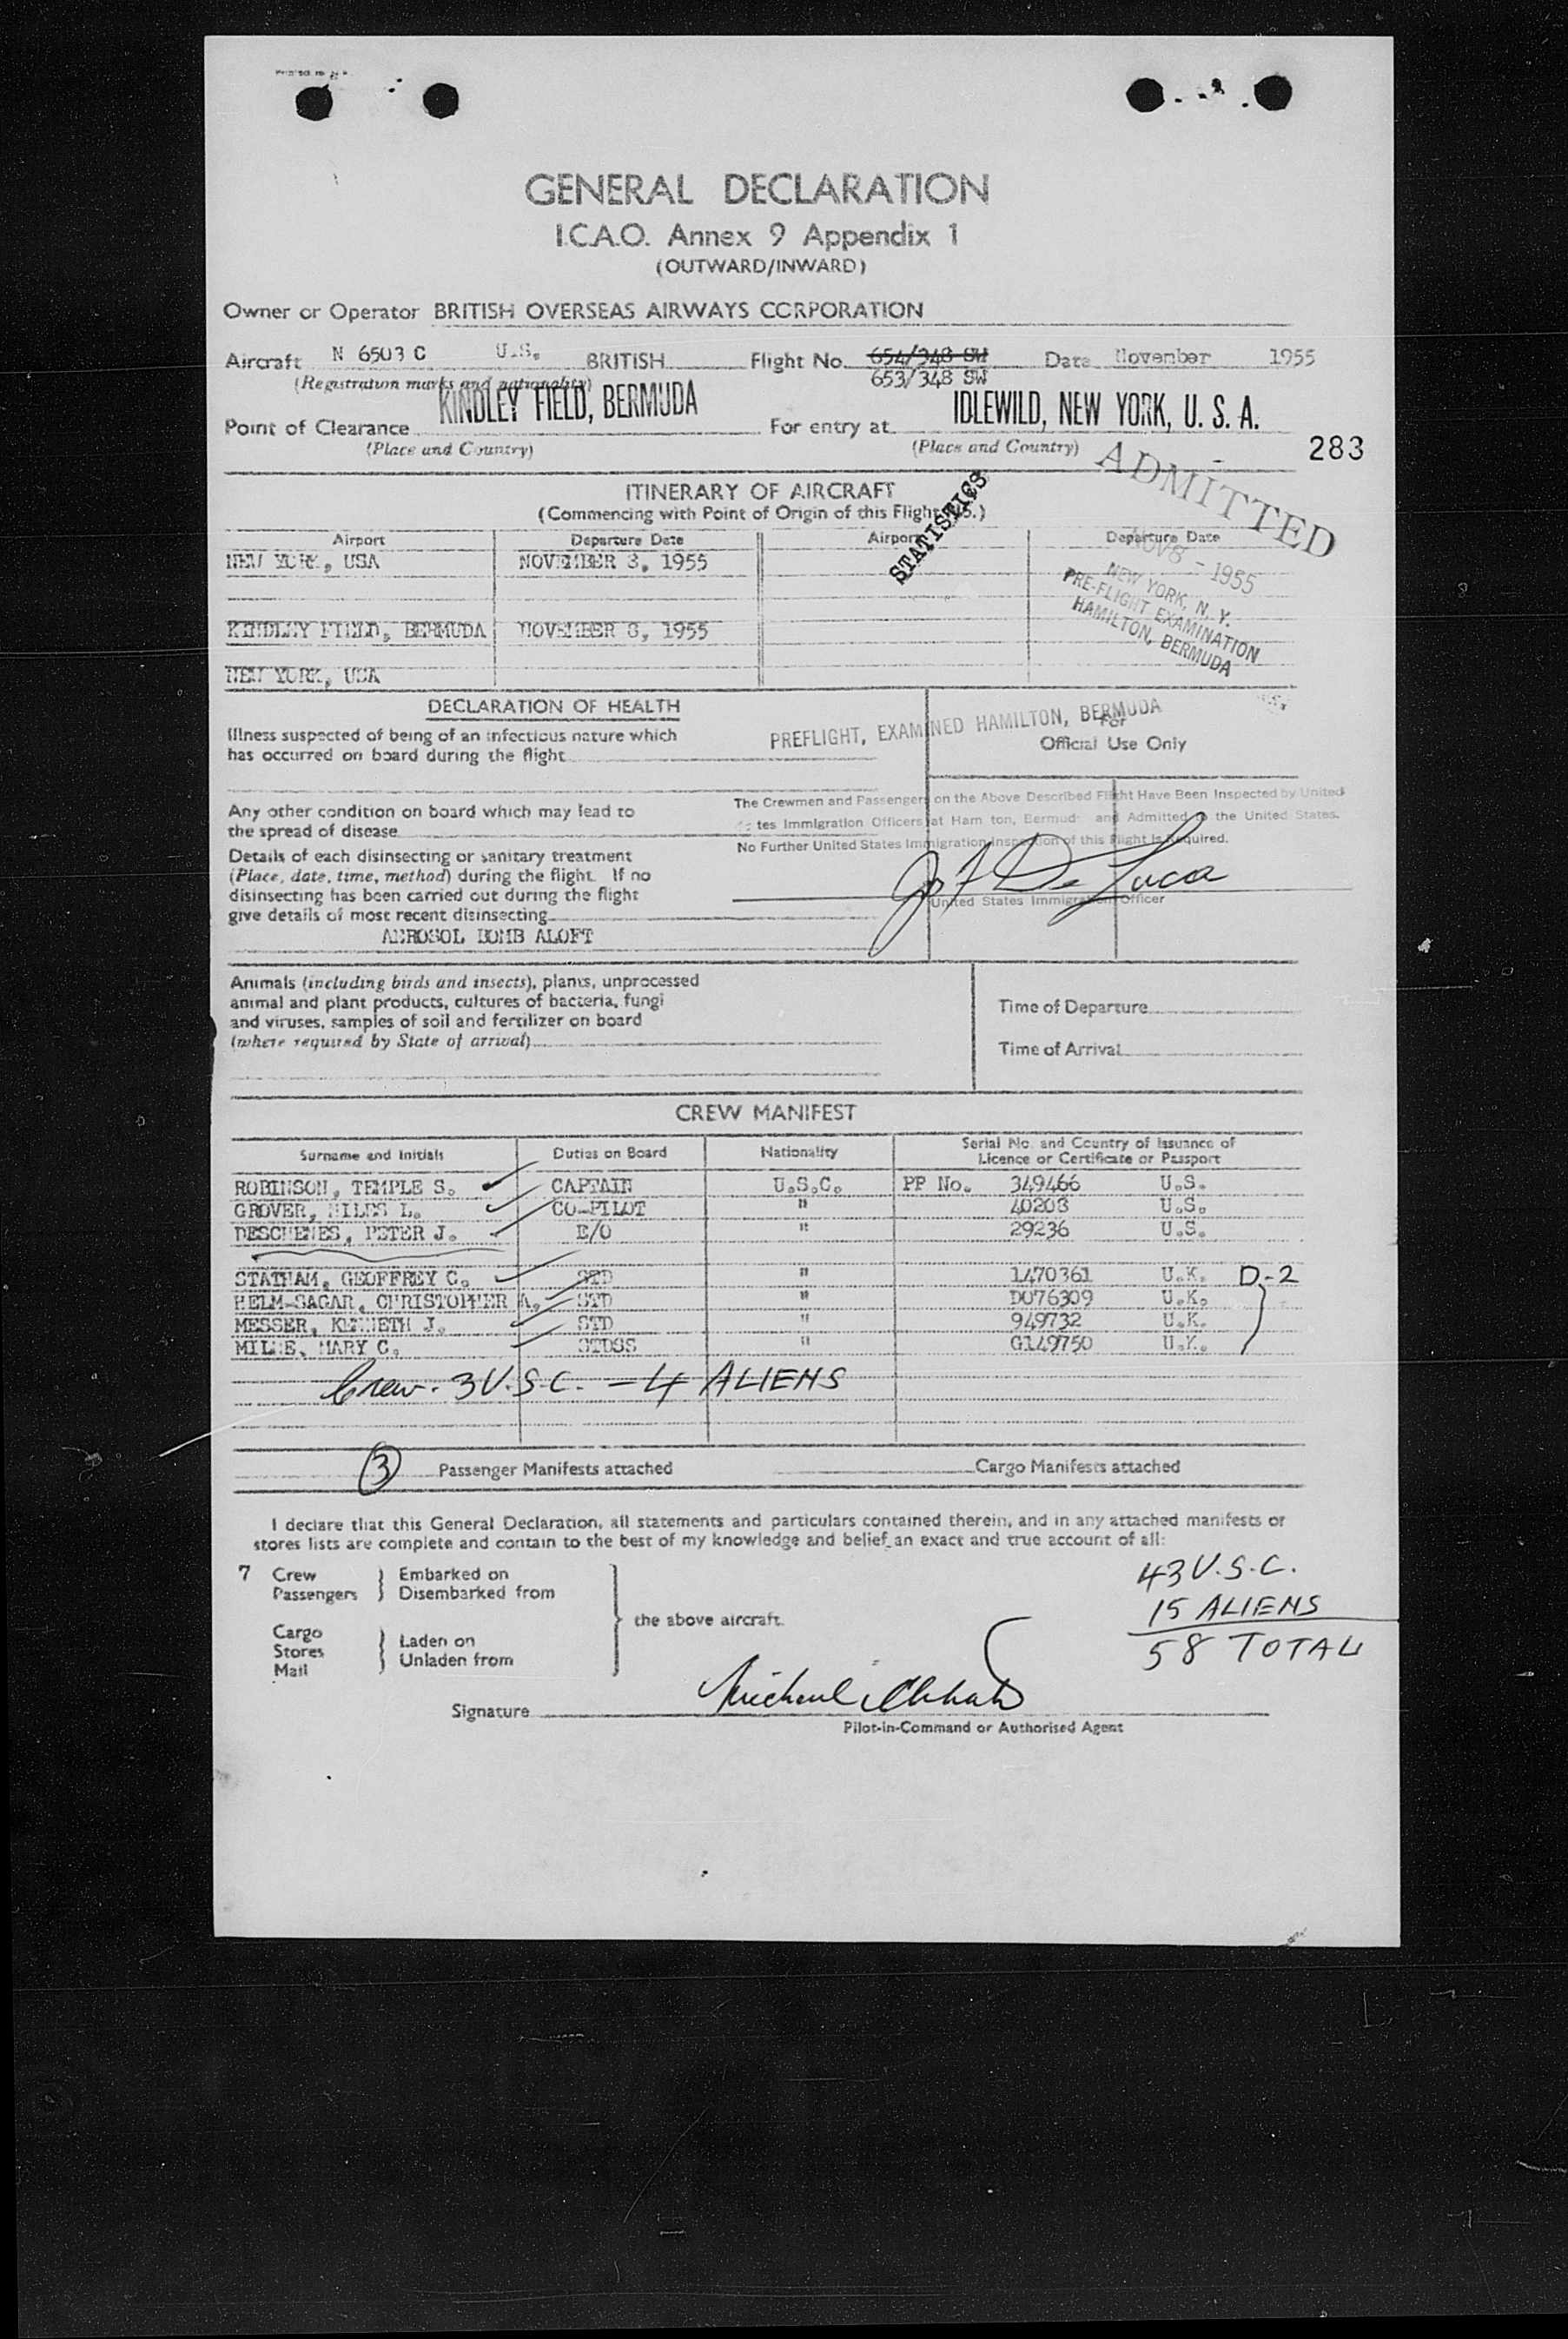 GENERAL DECLARATION
I.C.A.O. Annex 9 Appendix 1
(OUTWARD/INWARD)
Owner or Operator BRITISH OVERSEAS AIRWAYS CORPORATION
Aircraft N 6503 C U.S. BRITISH Flight No. 654/348 SW Date November 1955
(Registration marks and nationality) 653/348 SW
Point of Clearance KINDLEY FIELD, BERMUDA For entry at IDLEWILD, NEW YORK, U. S. A.
(Place and Country) (Place and Country) 283
ADMITTED
ITINERARY OF AIRCRAFT
(Commencing with Point of Origin of this Flight .)
STATISTICS
Airport Departure Date Airport Departure Date
NEW YORK, USA NOVEMBER 8, 1955
NOV 8 - 1955
NEW YORK, N. Y.
PRE-FLIGHT EXAMINATION
HAMILTON, BERMUDA
KINDLEY FIELD, BERMUDA NOVEMBER 8, 1955
NEW YORK, USA
DECLARATION OF HEALTH
PREFLIGHT, EXAMINED HAMILTON, BERMUDA
For
Official Use Only
Illness suspected of being of an infectious nature which
has occurred on board during the flight
Any other condition on board which may lead to
the spread of disease
The Crewmen and Passengers on the Above Described Flight Have Been Inspected by United
tes Immigration Officers at Ham ton, Bermud and Admitted to the United States.
No Further United States Immigration Inspection of this Flight is Required.
Jos F De Luca
United States Immigration Officer
Details of each disinsecting or sanitary treatment
(Place, date, time, method) during the flight. If no
disinsecting has been carried out during the flight
give details of most recent disinsecting
AEROSOL BOMB ALOFT
Animals (including birds and insects), plants, unprocessed
animal and plant products, cultures of bacteria, fungi
and viruses, samples of soil and fertilizer on board
(where required by State of arrival)
Time of Departure
Time of Arrival
CREW MANIFEST
Surname and Initials Duties on Board Nationality Serial No. and Country of Issuance of Licence or Certificate or Passport
ROBINSON, TEMPLE S. CAPTAIN U.S.C. PP No. 349466 U.S.
GROVER, MILES L. CO-PILOT " 40203 U.S.
DESCHENES, PETER J. E/O " 29236 U.S.
STATHAM, GEOFFREY C. STD " 1470361 U.K. D-2
HELM-SAGAR, CHRISTOPHER A. STD " D076309 U.K.
MESSER, KENNETH J. STD " 949732 U.K.
MILNE, MARY C. STDSS " G149750 U.K.
Crew. 3 U.S.C. - 4 ALIENS
3 Passenger Manifests attached Cargo Manifests attached
I declare that this General Declaration, all statements and particulars contained therein, and in any attached manifests or
stores lists are complete and contain to the best of my knowledge and belief an exact and true account of all:
7 Crew } Embarked on
Passengers } Disembarked from
the above aircraft.
Cargo
Stores } Laden on
Mail } Unladen from
43 U.S.C.
15 ALIENS
58 TOTAL
Signature Michael
Pilot-in-Command or Authorised Agent